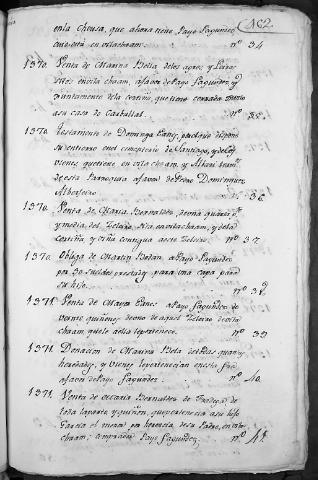 452.
en la Chousa, que ahora tiene Payo Fagundez
en vilachaam. nº 34
1370. Venta de Marina Bella de los agros, y
en vila chaam, a favor de Payo Fagundez, y
juntamente de la cortiña, que tiene cerrada junto
a su casa de Carballal. nº 35.
1370. Testamento de Dominga Eanes, por lo que dispone
su entierro en el cimeterio de Santiago, y de los
vienes, que tiene en vila chaam, y
de esta Parroquia a favor de Pedro Dominguez
nº 36
1370. Venta de Maria Bernaldez, de una quarta
y media del Teleiro en vilachaam, y de la
cortiña y viña contigua a este Teleiro. nº 37
1370. Obliga de Martin a Payo Fagundez
por 30 sueldos prestados para una capa para
su hijo. nº 38.
1371. Venta de Mayor Eanes a Payo Fagundez, de
veinte quiñones de uno de aquel Teleiro de vila
chaam que le a ella pertenecen. nº 39
1371. Donacion de Marina Bella de todas quantas
heredades, y vienes le pertenecian en esta
a favor de Payo Fagundez. nº 40.
1371. Venta de Maria Bernaldez de
toda la parte y quiñon, que pertenecia a su hijo
Garcia el menor por herencia, de su Padre, en vila
chaam, comprador Payo Fagundez. nº 41.